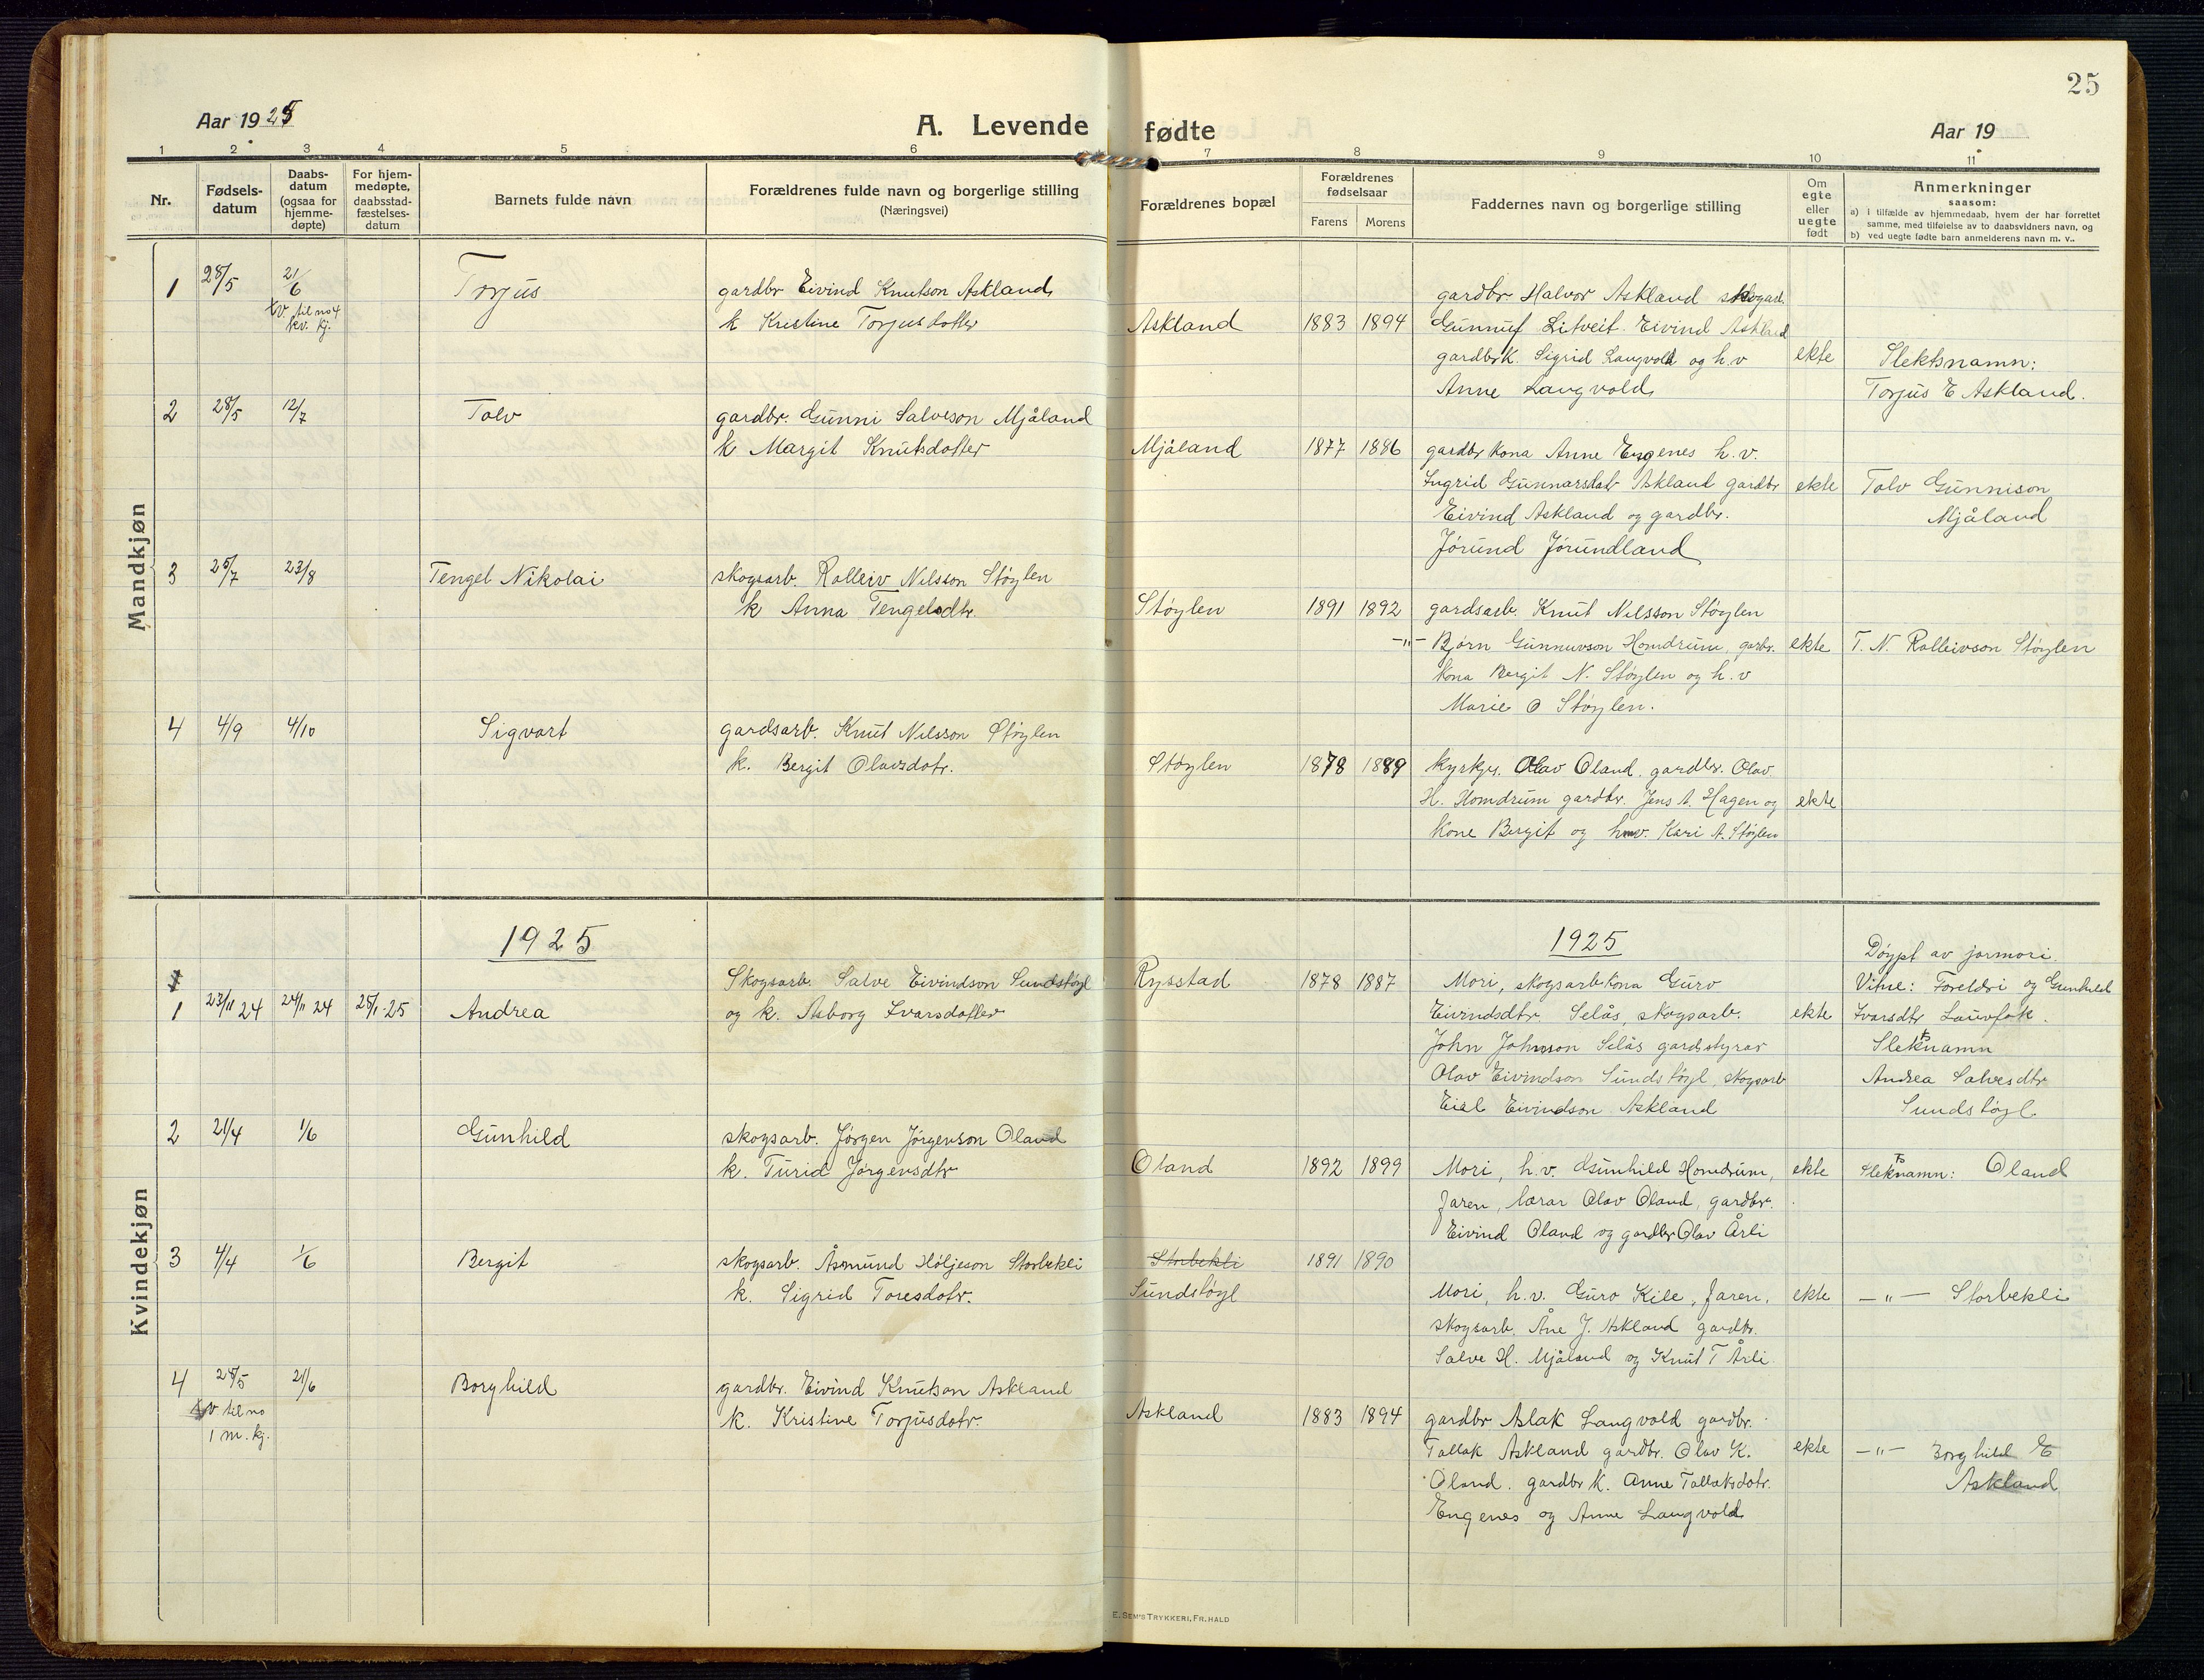 25
Aar 1925
A. Levende fødte
Aar 19
1 2 3 4 5 6 7 8 9 10 11
Nr.
Fødsels-
datum
Daabs-
datum
(ogsaa for
hjemme-
døpte)
For hjem-
medøpte,
daabsstad-
fæstelses-
datum
Barnets fulde navn
Forældrenes fulde navn og borgerlige stilling
(Næringsvei)
Forældrenes bopæl
Forældrenes
fødselsaar
Farens Morens
Faddernes navn og borgerlige stilling
Om
egte
eller
uegte
født
Anmerkninger
saasom:
a) i tilfælde av hjemmedaab, hvem der har forrettet
samme, med tilføielse av to daabsvidners navn, og
b) ved uegte fødte barn anmelderens navn m. v..
Mandkjøn
1 28/5 21/6 Torjus
tv. til no 4
kv. kj.
gardbr Eivind Knutson Askland
k Kristine Torjusdotter
Askland 1883 1894
gardbr Halvor Askland skogarb.
Gunnuf Litveit. Eivind Askland
gardbrk. Sigrid Langvold og h.v
Anne Langvold
ekte
Slektsnamn:
Torjus E Askland.
2 28/5 12/7 Tolv
gardbr. Gunni Salveson Mjåland
k Margit Knutsdotter
Mjåland 1877 1886
gardbrkona Anne Engenes h.v.
Ingrid Gunnarsdotr Askland gardbr
Eivind Askland og gardbr.
Jørund Jørundland
ekte
Tolv Gunnison
Mjåland
3 25/7 23/8 Tengel Nikolai
skogsarb. Rolleiv Nilsson Støylen
k Anna Tengelsdtr.
Støylen 1891 1892
gardsarb. Knut Nilsson Støylen
-"- Bjørn Gunnuvson Homdrum, garbr.
kona Bergit N. Støylen og h.v
Marie O Støylen.
ekte
T. N. Rolleivson Støylen
4 4/9 4/10 Sigvart
gardsarb. Knut Nilsson Støylen
k. Bergit Olavsdotr.
Støylen 1878 1889
kyrkjs. Olav Oland. gardbr. Olav
H. Homdrum gardbr. Jens A. Hagen og
kone Bergit og h.v. Kari A. Støylen
ekte
Kvindekjøn
1925
1925
1 23/11 24 24/11 24 25/1-25 Andrea
Skogsarb. Salve Eivindson Sundstøyl
og k. Asborg Ivarsdotter
Rysstad 1878 1887
Mori, skogsarbkona Guro
Eivindsdtr Selås, skogsarb.
John Johnson Selås gardsstyrar
Olav Eivindson Sundstøyl, skogsarb
Eiel Eivindson Askland
ekte
Døypt av jormori.
Vitne: Foreldri og Gunhild
Ivarsdtr Lauvfok.
Slektsnamn
Andrea Salvesdtr
Sundstøyl
2 21/4 1/6 Gunhild
skogsarb. Jørgen Jørgenson Oland
k. Turid Jørgensdtr
Oland 1892 1899
Mori, h.v. Gunhild Homdrum,
Faren, lærar Olav Oland, gardbr.
Eivind Oland og gardbr Olav Årli
ekte
Slektsnamn: Oland
3 4/4 1/6 Bergit
skogsarb. Åsmund Høljeson Storbekli
k. Sigrid Toresdotr.
Storbekli
Sundstøyl
1891 1890
Mori, h.v. Guro Kile, Faren,
skogsarb. Åne J. Askland gardbr.
Salve H. Mjåland og Knut T Årli
ekte
-"- Storbekli
4 28/5 21/6 Borghild
tv til no
1 m. kj.
gardbr. Eivind Knutson Askland
k. Kristine Torjusdotr.
Askland 1883 1894
gardbr Aslak Langvold gardbr.
Tallak Askland gardbr. Olav K.
Oland. gardbr k. Anne Tallaksdotr.
Engenes og Anne Langvold
ekte
-"- Borghild E
Askland
E. SEM'S TRYKKERI, FR.HALD